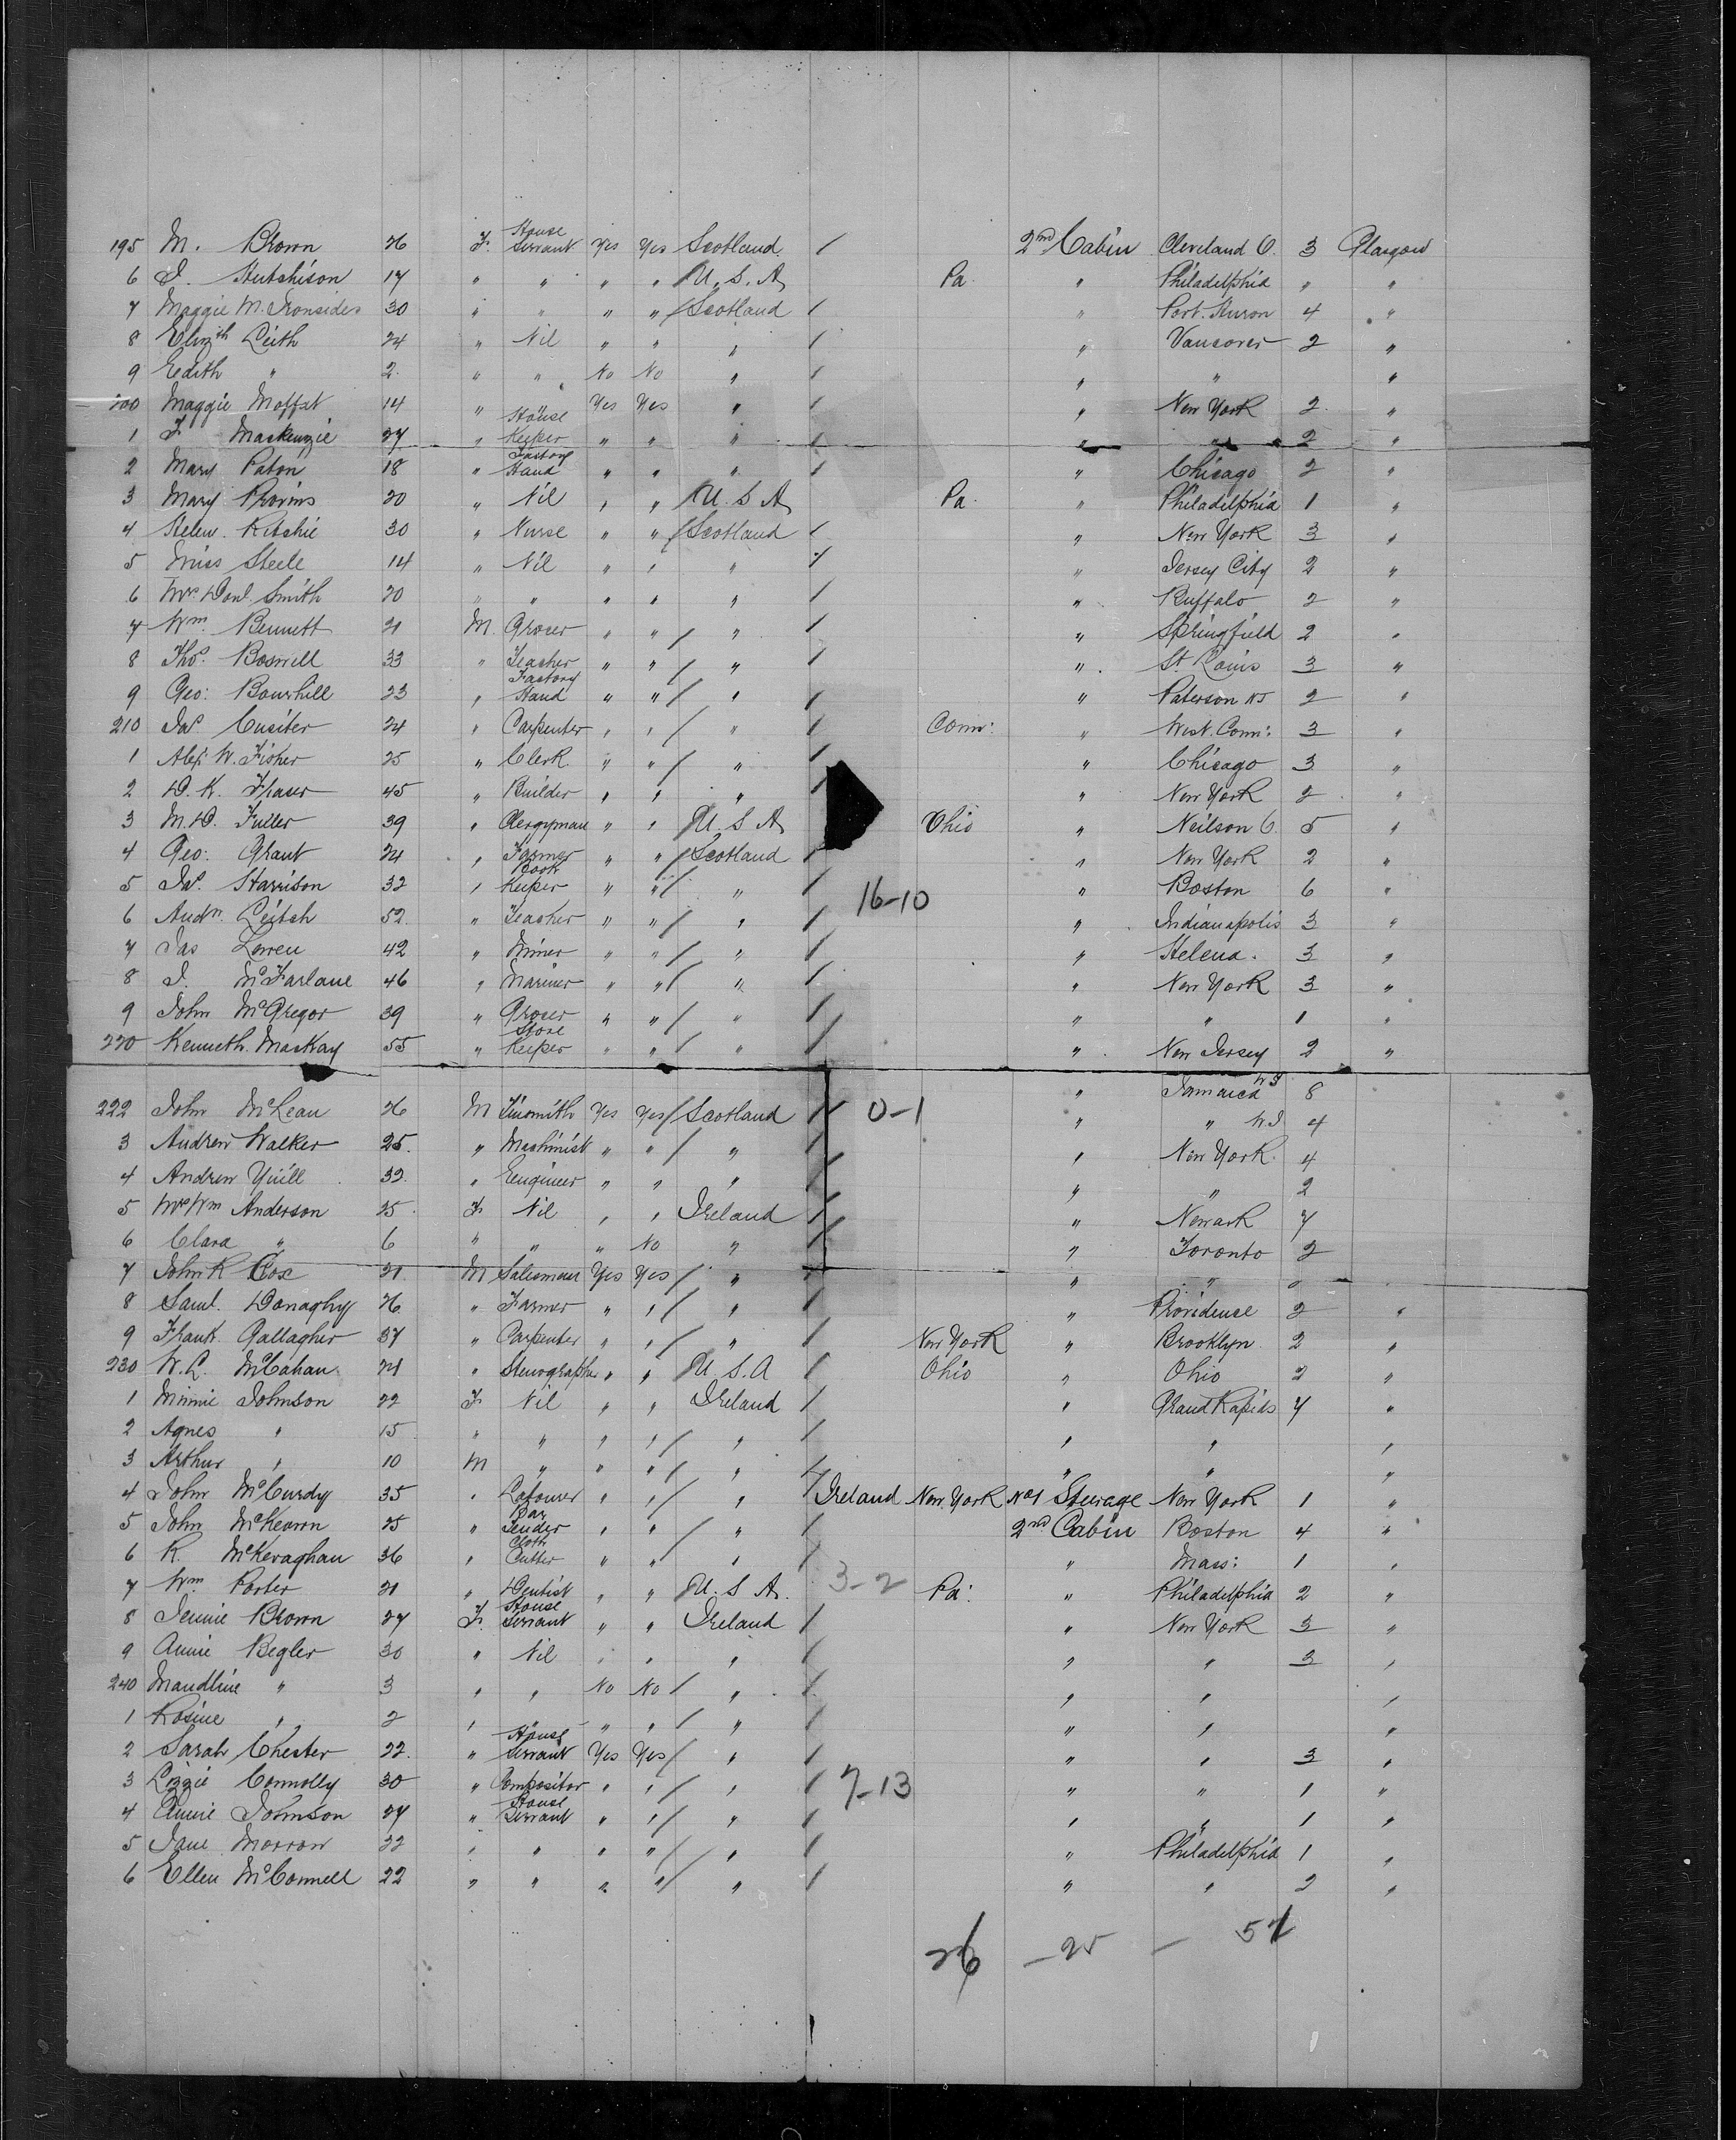 195 M. Brown 26 F. House Servant Yes Yes Scotland / 2nd Cabin Cleveland O. 3 Glasgow
6 J. Hutchison 17 " " " " U.S.A. Pa. " Philadelphia " "
7 Maggie M. Ironsides 30 " " " " / Scotland / " Port Huron 4 "
8 Elizth Leith 24 " Nil " " " / " Vancover 2 "
9 Eedith " 2 " " No No " / " " "
200 Maggie Moffat 14 " Yes Yes " / " New York 2 "
1 F Mackenzie 27 " House Keeper " " " / " " 2 "
2 Mary Paton 18 " Factory Hand " " " / " Chicago 2 "
3 Mary Provins 20 " Nil " " U.S.A. Pa. " Philadelphia 1 "
4 Helen Ritchie 30 " Nurse " " / Scotland / " New York 3 "
5 Miss Steele 14 " Nil " " " / " Jersey City 2 "
6 Mrs Donl. Smith 20 " " " " " / " Buffalo 2 "
7 Wm. Bennett 21 M. Grocer " " / " / " Springfield 2 "
8 Thos. Boswell 33 " Teacher " " / " / " St. Louis 3 "
9 Geo: Bourhill 23 " Factory Hand " " / " / " Paterson NJ 2 "
210 Jas. Cusiter 24 " Carpenter " " / " / Conn: " West. Conn: 3 "
1 Alex. W. Fisher 25 " Clerk " " / " / " Chicago 3 "
2 D.K. Fraser 45 " Builder " " " / " New York 2 "
3 M.D. Fuller 39 " Clergyman " " U.S.A. Ohio " Neilson O. 5 "
4 Geo: Grant 24 " Farmer " " / Scotland / " New York 2 "
5 Jas. Harrison 32 " Book Keeper " " / " / 16-10 " Boston 6 "
6 Andw. Leitch 52 " Teacher " " / " / " Indianapolis 3 "
7 Jas Lowen 42 " Miner " " / " / " Helena. 3 "
8 J. McFarlane 46 " Mariner " " / " / " New York 3 "
9 John McGregor 39 " Grocer " " / " / " " 1 "
220 Kenneth. MacKay 55 " Store Keeper " " / " / " New Jersey 2 "
" Jamaica WI 8
222 John McLean 26 M Tinsmith Yes Yes / Scotland / 0-1 " " WI 4
3 Andrew Walker 25. " Machinist " " / " / " New York. 4
4 Andrew Yuill 32. " Eengineer " " " / " " 2
5 Mrs Wm Anderson 25 F. Nil " " Ireland / " Newark 7
6 Clara " 6 " " " No " / " Toronto 2
7 John R Cox 21. M Salesman Yes Yes / " / " "
8 Saml. Donaghy 26 " Farmer " " / " / " Providence 2 "
9 Frank Gallagher 37 " Carpenter " " / " / New York " Brooklyn. 2 "
230 W.L. McCahan 21 " Stenographer " " U.S.A / Ohio " Ohio 2 "
1 Minnie Johnson 22 F. Nil " " Ireland / " Grand Rapids 7 "
2 Agnes " 15 " " " " / " / " " "
3 Arthur " 10 M " " " / " / " " "
4 John McCurdy 35 " Labourer " " / " Ireland New York No1 Steerage New York 1 "
5 John McKeown 25 " Bar Tender " " / " / 2nd Cabin Boston 4 "
6 R. McKeraghan 36 " Cloth Cutter " " " / " Mass: 1 "
7 Wm. Porter 21 " Dentist " " U.S.A. 3-2 Pa: " Philadelphia 2 "
8 Jennie Brown 27 F. House Servant " " Ireland / " New York 3 "
9 Annie Begler 30 " Nil " " " / " " 3 "
240 Maudline " 3 " " No No / " / " " "
1 Rosine " 2 " " " " / " / " " "
2 Sarah Chester 22. " House Servant Yes Yes / " / " " 3 "
3 Lizzie Connolly 30 " Compositor " " / " / 7-13 " " 1 "
4 Annie Johnson 27 " House Servant " " / " / " " 1 "
5 Jane Morrow 22 " " " " / " / " Philadelphia 1 "
6 Ellen McConnell 22 " " " " / " / " " 2 "
26 - 25 - 51